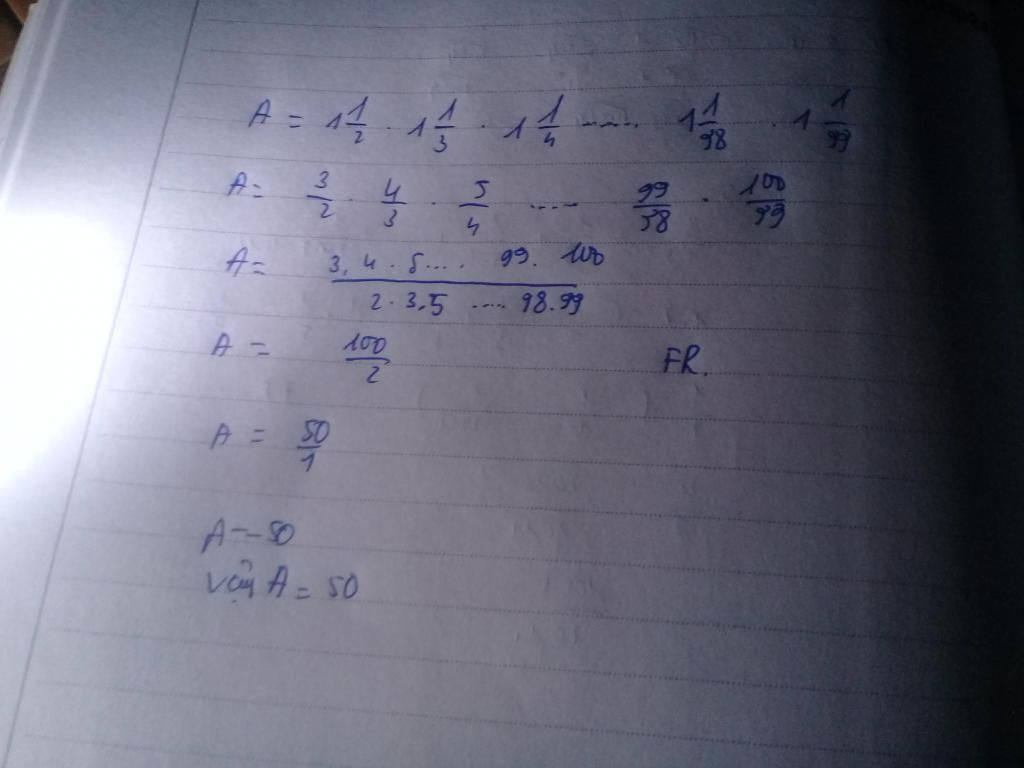 A = 1 1/2 . 1 1/3 . 1 1/4 ..... 1 1/98 . 1 1/99
A = 3/2 . 4/3 . 5/4 .... 99/98 . 100/99
A = 3. 4 . 5 .... 99. 100 / 2 . 3. 5 .... 98 . 99
A = 100/2 FR.
A = 50/1
A = 50
vậy A = 50